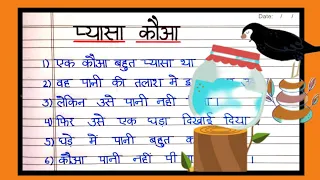 Date: / /
प्यासा कौआ
1) एक कौआ बहुत प्यासा था
2) वह पानी की तलाश मे
3) लेकिन उसे पानी नही
4) फिर उसे एक घड़ा दिखाई दिया
5) घड़े मे पानी बहुत
6) कौआ पानी नहीं पी